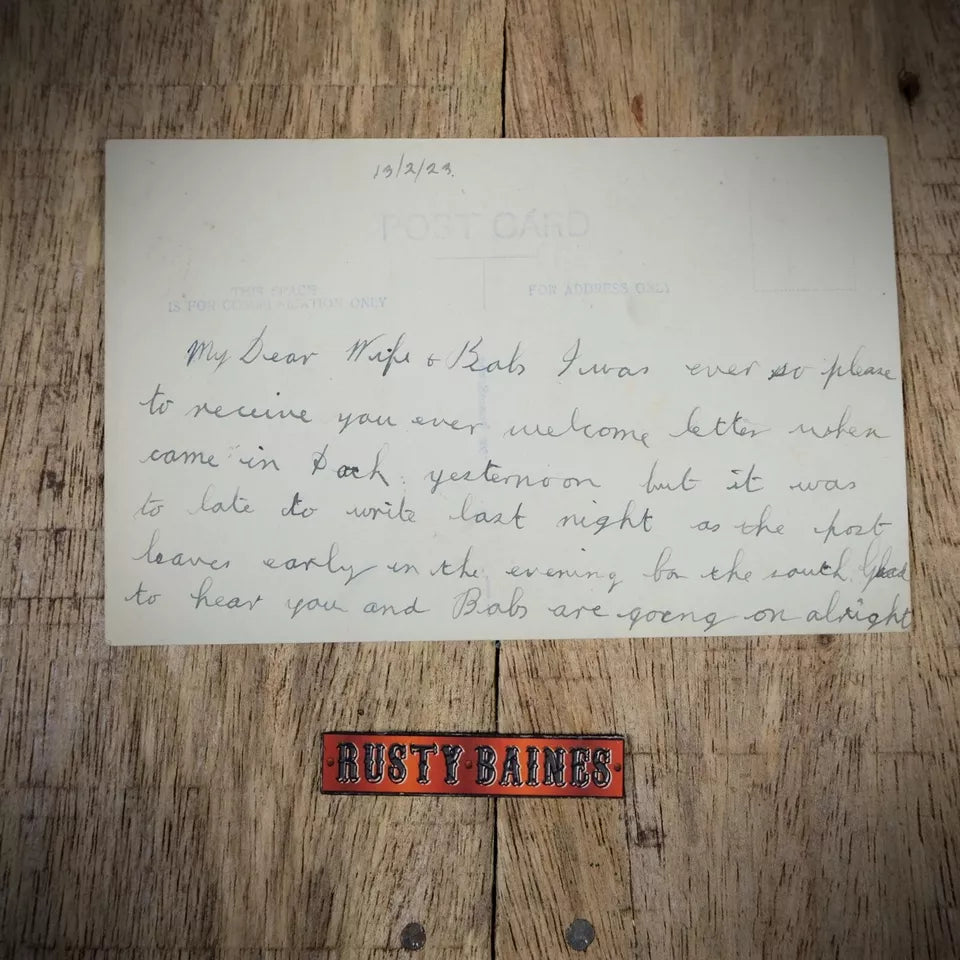 13/2/23.
POST CARD
THIS SPACE
IS FOR COMMUNICATION ONLY
FOR ADDRESS ONLY
My Dear Wife & Babs I was ever so please
to receive you ever welcome letter when
came in yesternoon but it was
to late to write last night as the post
leaves early in the evening for the south. Glad
to hear you and Babs are going on alright
RUSTY·BAINES